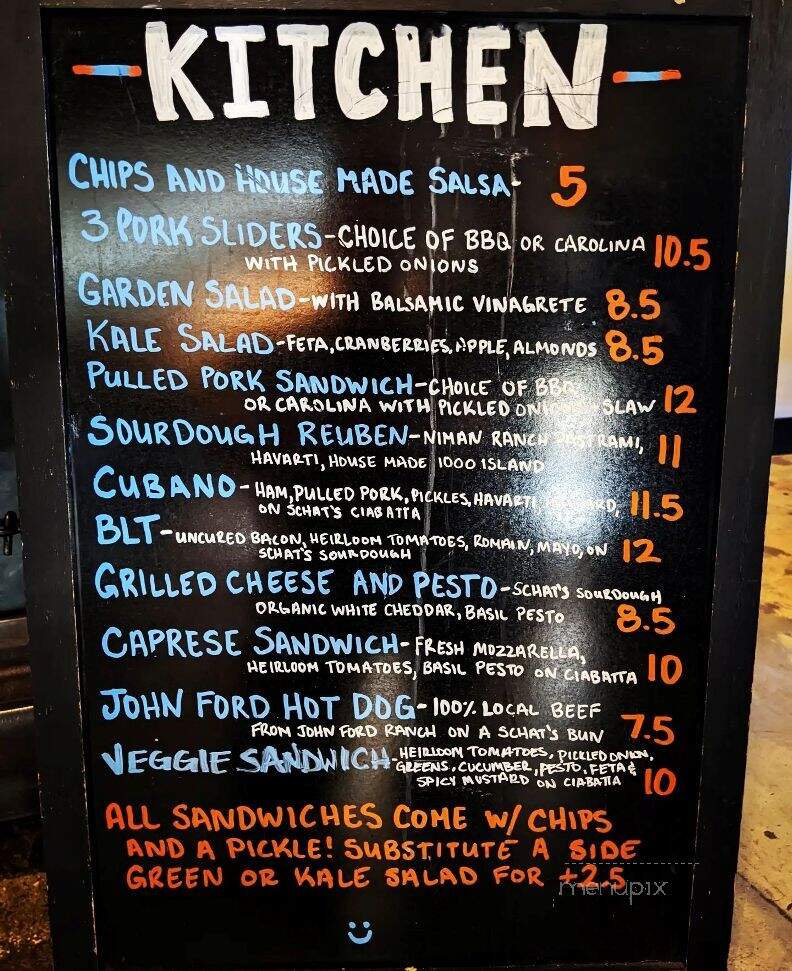 KITCHEN
CHIPS AND HOUSE MADE SALSA- 5
3 PORK SLIDERS-CHOICE OF BBQ OR CAROLINA 10.5
WITH PICKLED ONIONS
GARDEN SALAD-WITH BALSAMIC VINAGRETE 8.5
KALE SALAD-FETA, CRANBERRIES, APPLE, ALMONDS 8.5
PULLED PORK SANDWICH-CHOICE OF BBQ
OR CAROLINA WITH PICKLED SLAW 12
SOURDOUGH REUBEN-NIMAN RANCH PASTRAMI, 11
HAVARTI, HOUSE MADE 1000 ISLAND
CUBANO-HAM, PULLED PORK, PICKLES, HAVARTI, 11.5
ON SCHAT'S CIABATTA
BLT-UNCURED BACON, HEIRLOOM TOMATOES, ROMAIN, MAYO, ON 12
SCHAT'S SOURDOUGH
GRILLED CHEESE AND PESTO-SCHAT'S SOURDOUGH
ORGANIC WHITE CHEDDAR, BASIL PESTO 8.5
CAPRESE SANDWICH-FRESH MOZZARELLA,
HEIRLOOM TOMATOES, BASIL PESTO ON CIABATTA 10
JOHN FORD HOT DOG-100% LOCAL BEEF
FROM JOHN FORD RANCH ON A SCHAT'S BUN 7.5
VEGGIE SANDWICH-HEIRLOOM TOMATOES, PICKLED ONION,
GREENS, CUCUMBER, PESTO, FETA &
SPICY MUSTARD ON CIABATTA 10
ALL SANDWICHES COME W/ CHIPS
AND A PICKLE! SUBSTITUTE A SIDE
GREEN OR KALE SALAD FOR +2.5
menupix